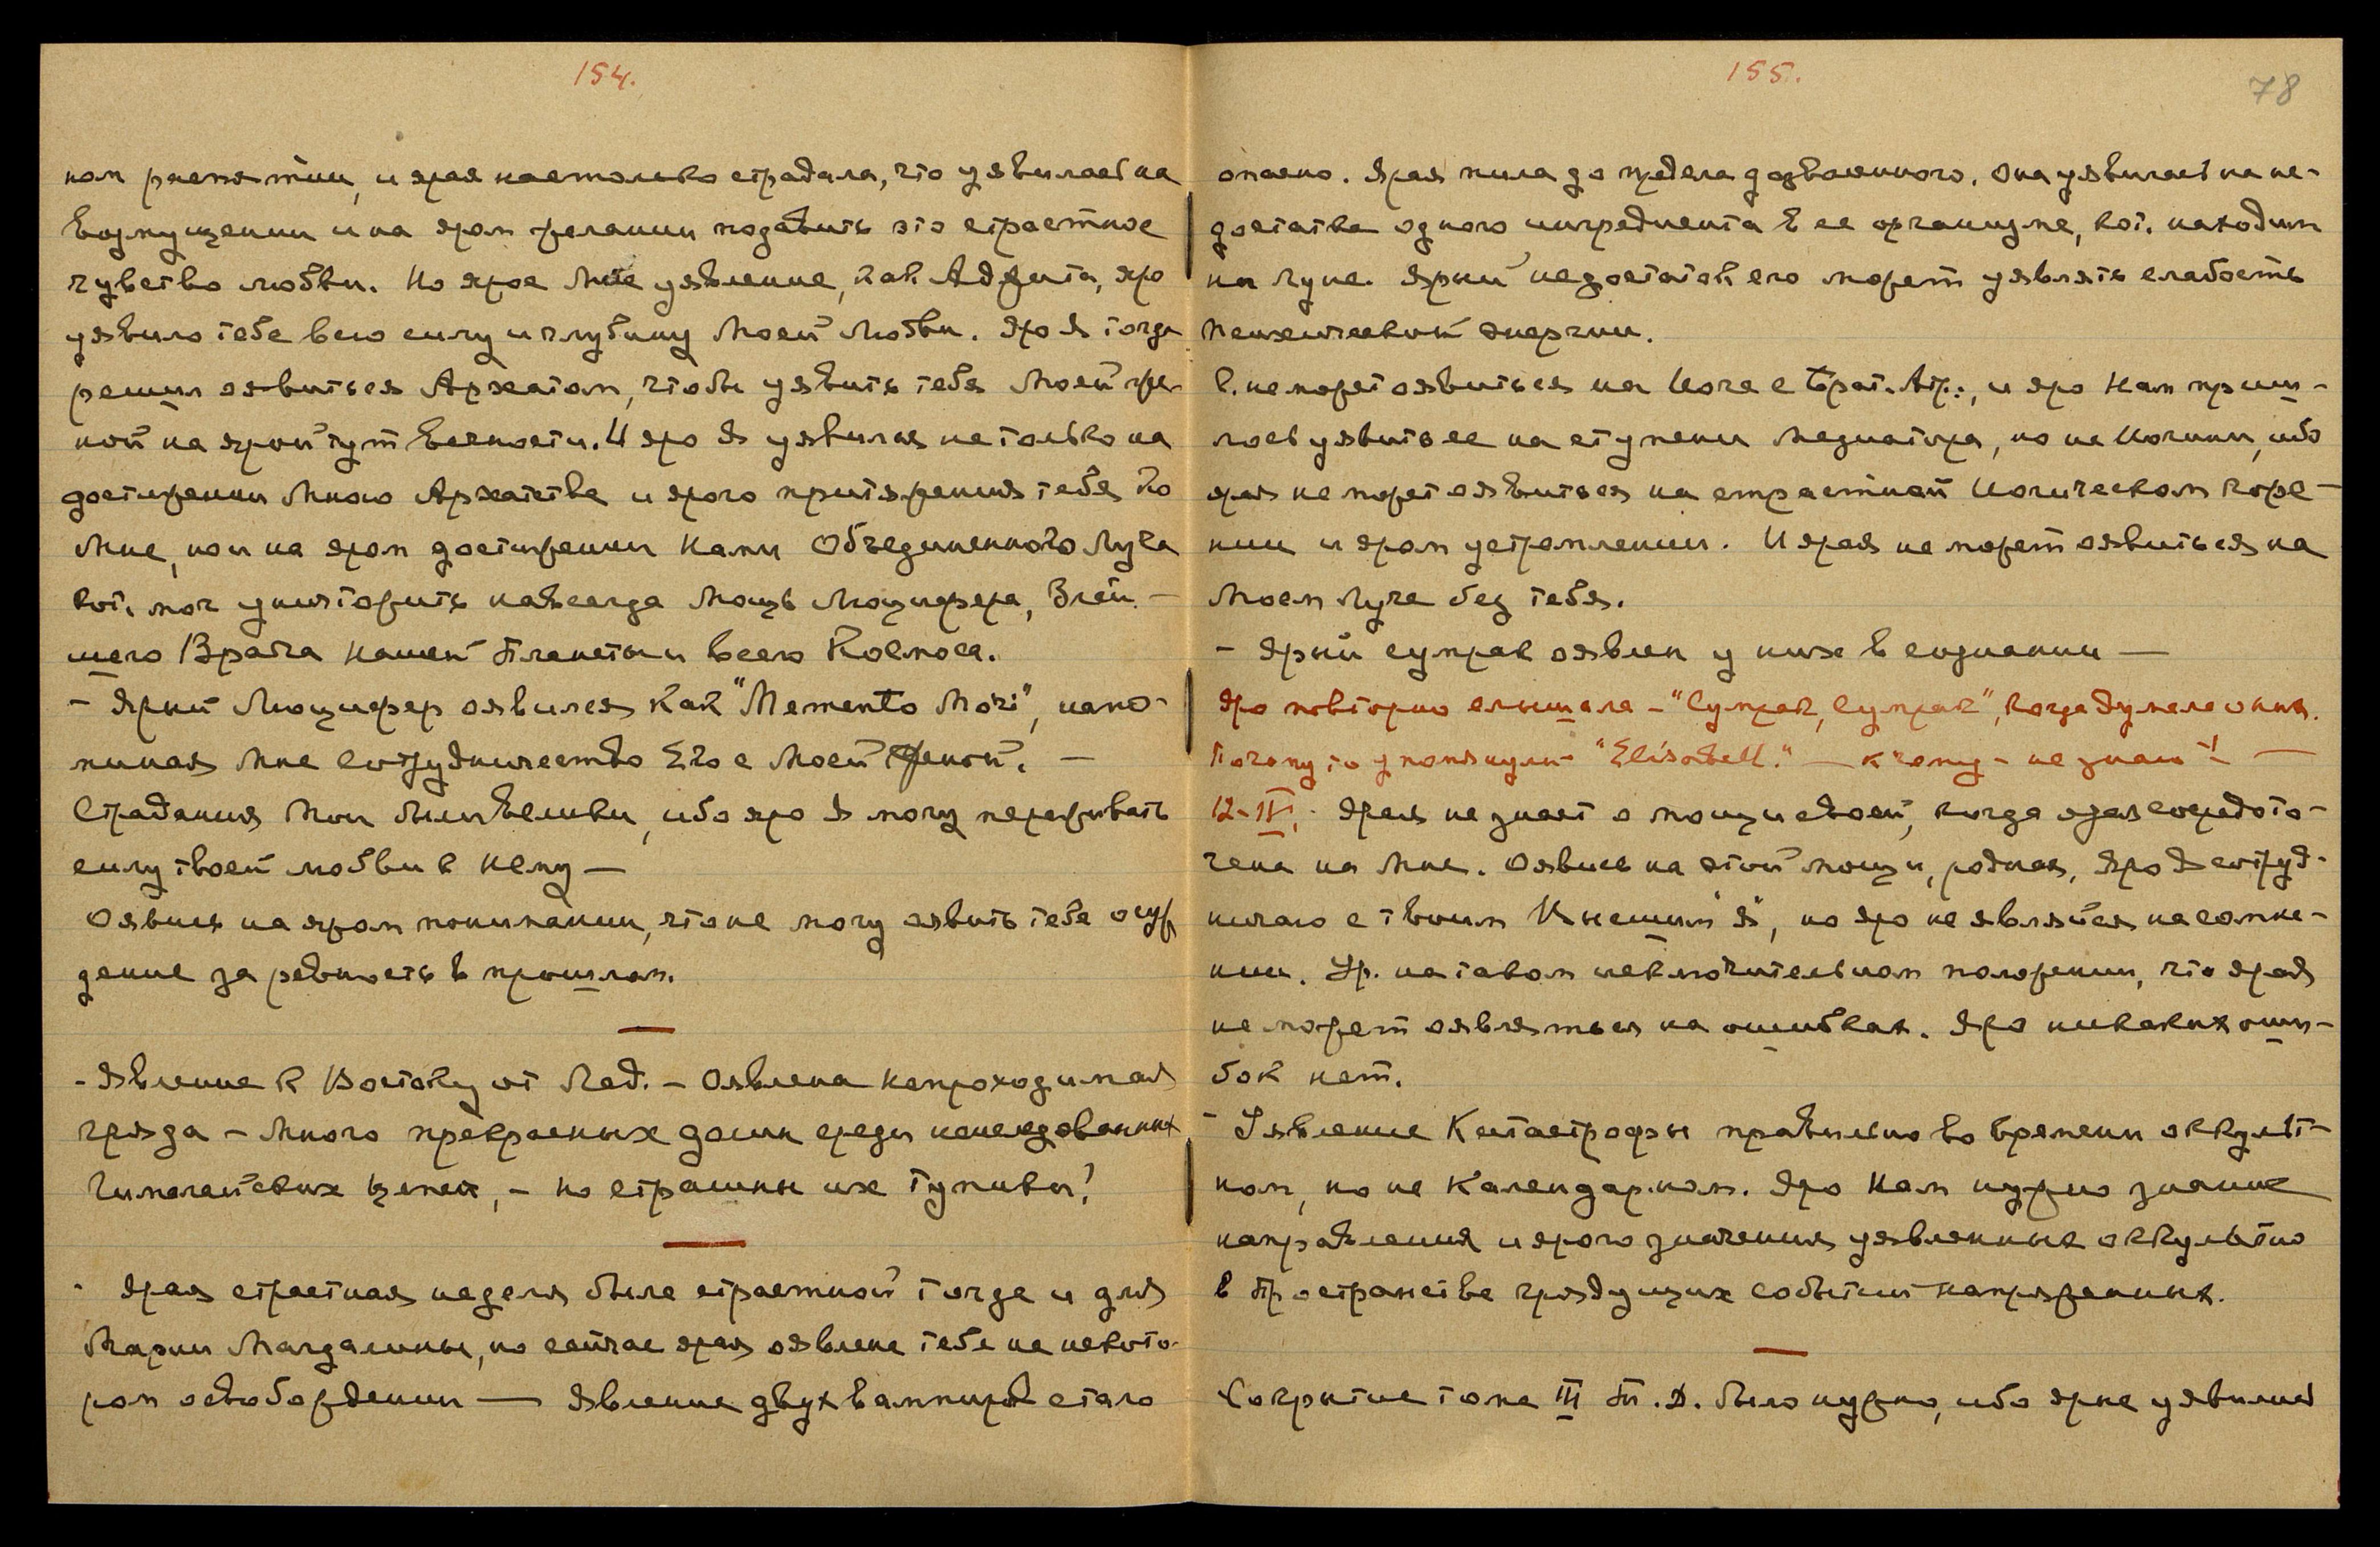 154.
ном распятии, и ярая настолько страдала, что уявилась на
возмущении и на яром желании подавить это страстное
чувство любви. Но ярое Мое уявление, как Адепта, яро
уявило тебе всю силу и глубину Моей Любви. Яро Я тогда
решил оявиться Архатом, чтобы уявить тебя Моей же-
ной на ярой тут Вечности. И яро Я уявился не только на
достижении Мною Архатства и ярого притяжения тебя ко
Мне, но и на яром достижении Нами Объединенного Луча
кот. мог уничтожить навсегда Мощь Люцифера, Злей-
шего Врага нашей Планеты и всего Космоса.
- Ярый Люцифер оявился как "Memento Mori", напо-
миная Мне сотрудничество Его с Моей Женой. —
Страдания Мои были велики, ибо яро Я могу переживать
силу твоей любви к Нему —
Оявись на яром понимании, что не могу оявить тебе осуж
дение за ревность в прошлом.
- Явление к Востоку от Лад. - Оявлена непроходимая
гряда - много прекрасных долин среди неисследованных
Гималайских цепей, - но страшны их тупики!
- Ярая страстная неделя была страстной тогда и для
Марии Магдалины, но сейчас ярая оявлена тебе на некото-
ром освобождении — Явление двух вампиров стало
155.
78
опасно. Ярая пила до предела дозволенного. Она уявилась на не-
достатке одного ингредиента в ее организме, кот. находим
на Луне. Ярый недостаток его может уявлять слабость
психической энергии.
С. не может оявиться на Йоге с Брат. Ар., и яро Нам приш-
лось уявить ее на ступени медиатора, но не Йогини, ибо
ярая не может оявиться на страстном Йогическом горе-
нии и яром устремлении. И ярая не может оявиться на
Моем Луче без тебя.
- Ярый сумрак оявлен у них в сознании —
Яро повторно слышала - "Сумрак, Сумрак", когда думала о них.
Почему-то упомянули "Elisabeth." — к чему - не знаю! —
12-IV. - Ярая не знает о мощи своей, когда ярая сосредото-
чена на Мне. Оявись на этой мощи, родная, Яро Я сотруд-
ничаю с твоим Высшим "Я", но яро не являйся на сомне-
нии. Ур. на таком исключительном положении, что ярая
не может оявляться на ошибках. Яро никаких оши-
бок нет.
- Уявление Катастрофы правильно во времени оккульт-
ном, но не Календарном. Яро Нам нужно знание
направления и ярого значения уявленных оккультно
в Пространстве грядущих событий напряженных.
Сокрытие тома III Т. Д. было нужно, ибо ярые уявились